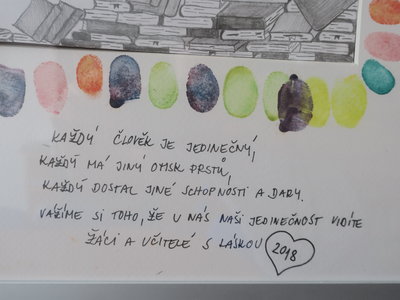 KAŽDÝ ČLOVĚK JE JEDINEČNÝ,
KAŽDÝ MÁ JINÝ OTISK PRSTŮ,
KAŽDÝ DOSTAL JINÉ SCHOPNOSTI A DARY.
VÁŽÍME SI TOHO, ŽE U NÁS NAŠI JEDINEČNOST VIDÍTE
ŽÁCI A UČITELÉ S LÁSKOU 2018